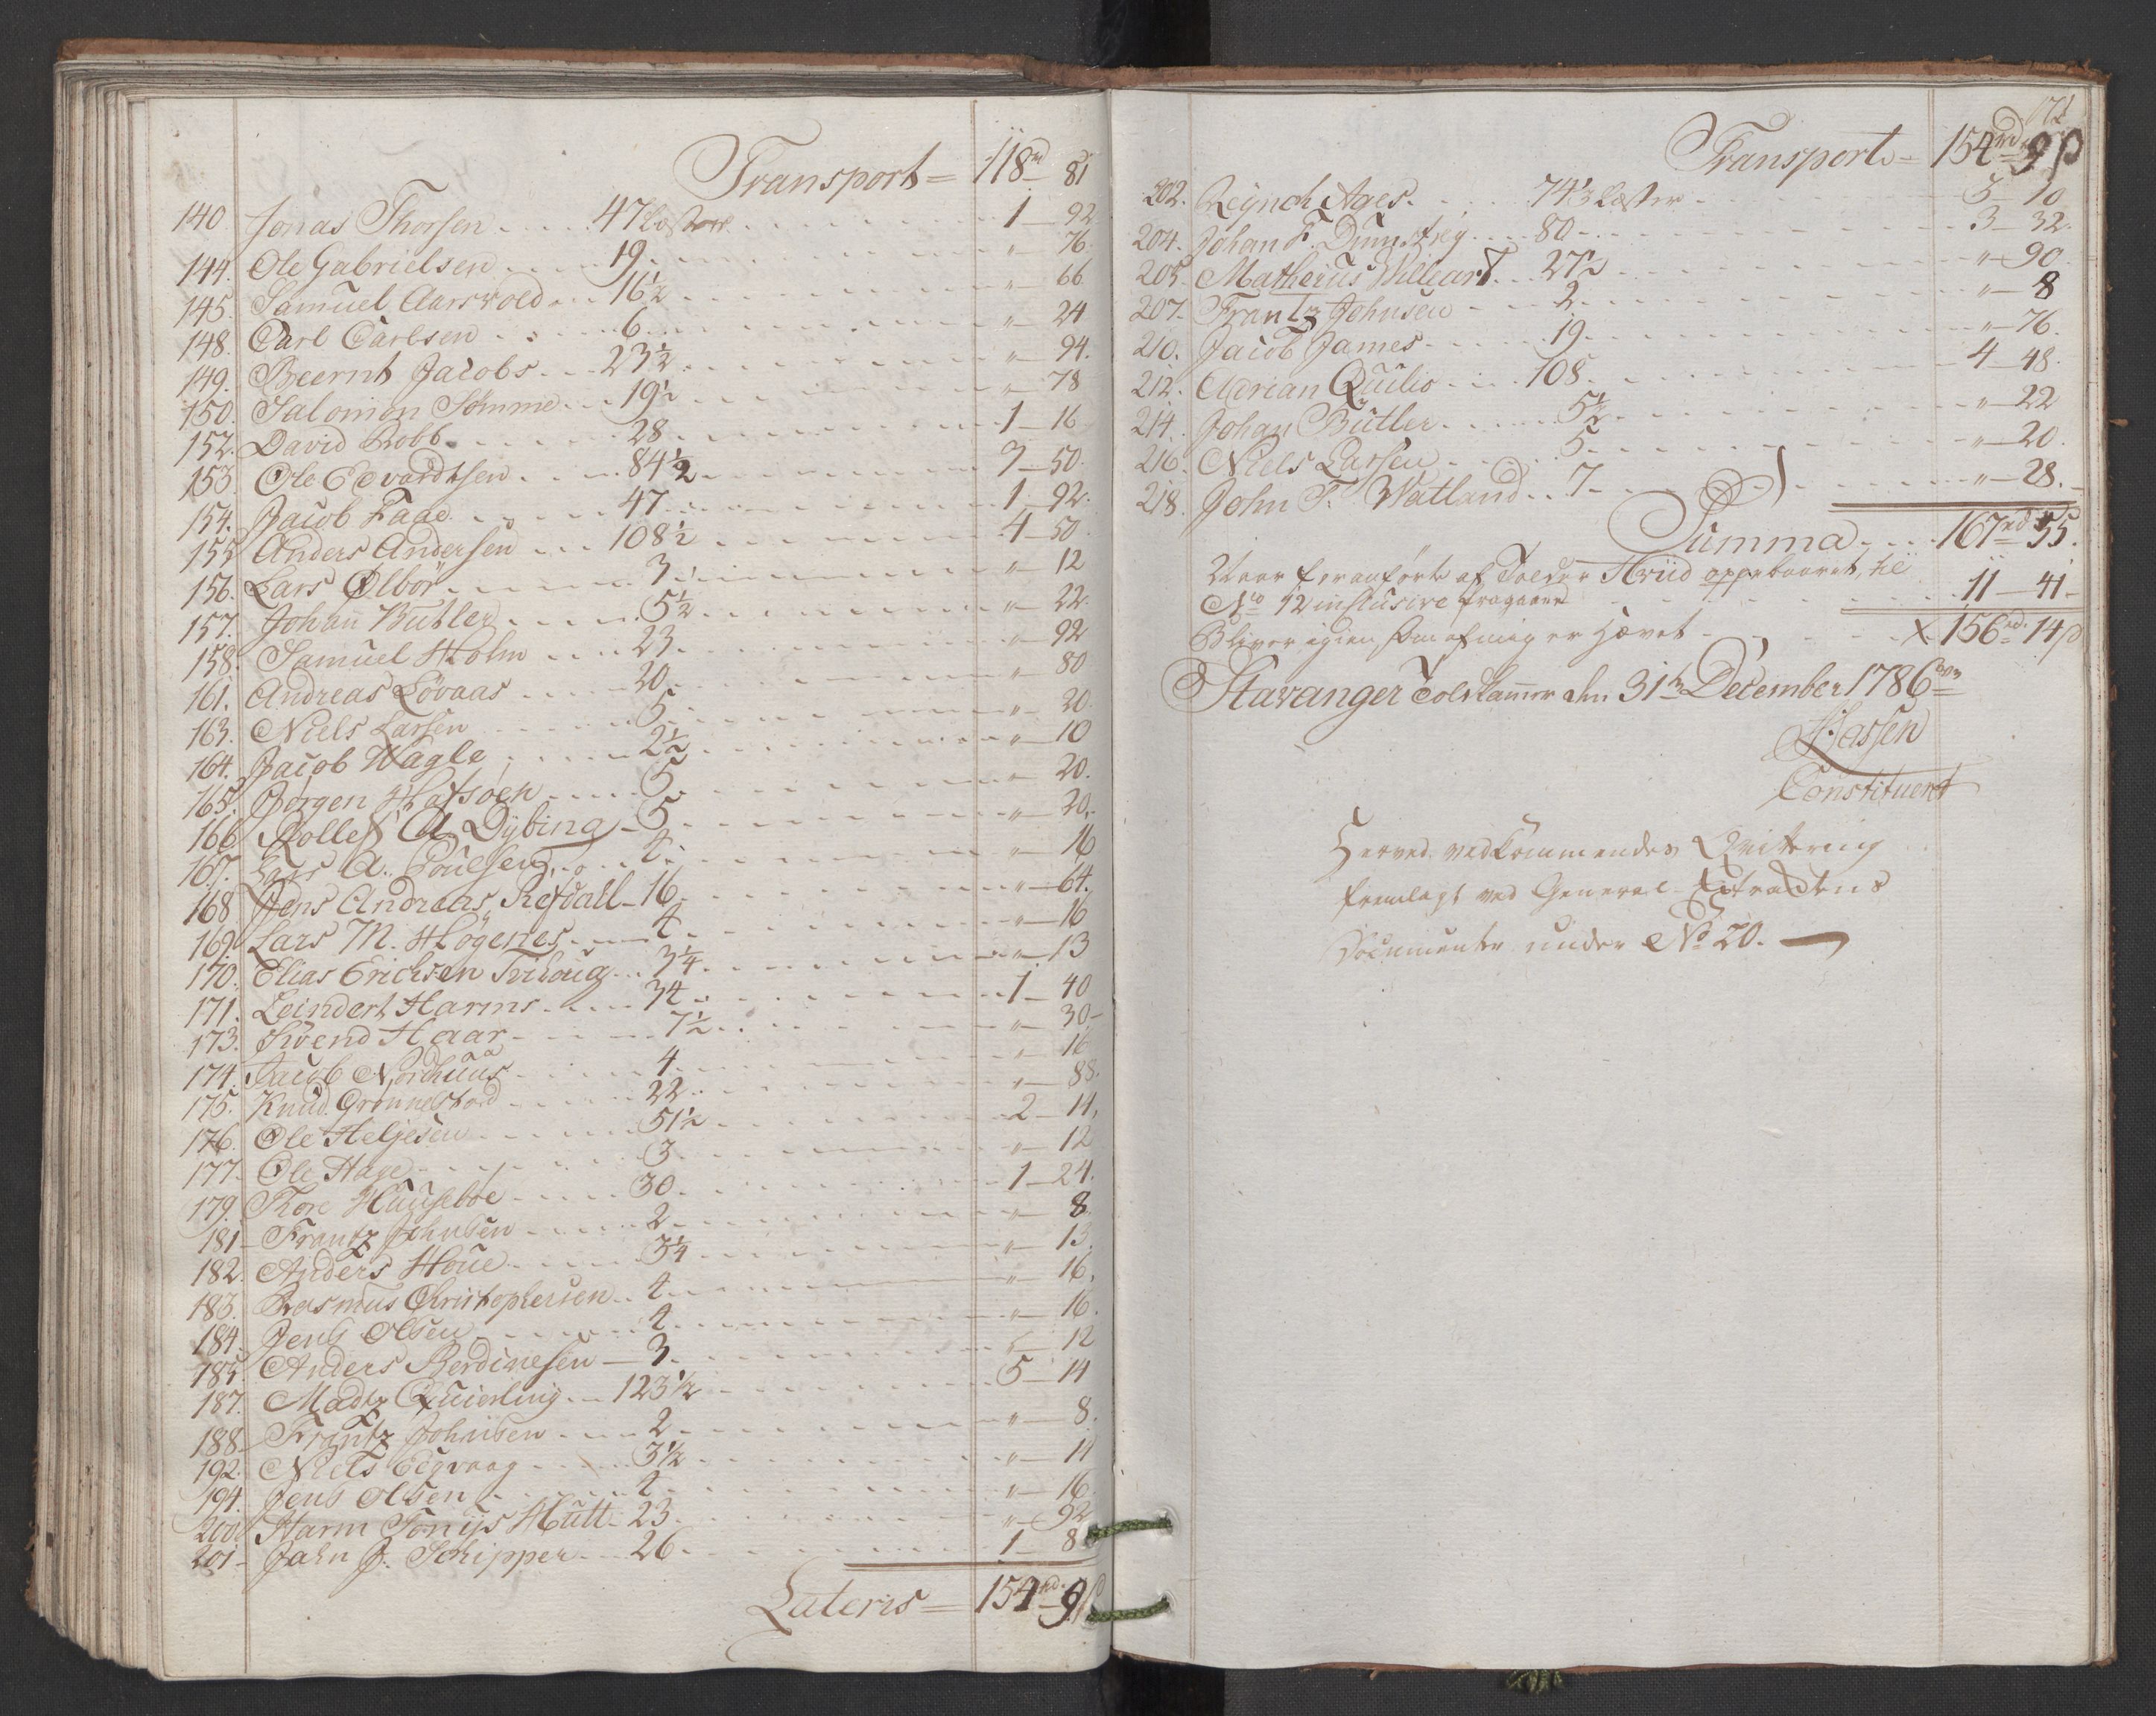 Transport = 118 rd 81
140 Jonas Thorsen 47 Læster 1 92
144. Ole Gabrielsen 19 " 76
145. Samuel Aarsvold 16½ " 66
148. Carl Carlsen 6 " 24
149. Beernt Jacobs 23½ " 94.
150. Salomon Sømme 19½ " 78
152. David Robb 28 1 16
153. Ole Edvardtsen 84½ 3 50.
154. Jacob Faae 47 1 92.
155 Anders Andersen 108½ 4 50
156. Lars Ølbör 3 " 12
157. Johan Butler 5½ " 22
158. Samuel Holm 23 " 92
161. Andreas Løvaas 20 " 80
163. Niels Larsen 5 " 20
164. Jacob Wagle 2½ " 10
165. Jørgen Hafsöen 5 " 20.
166 Rollef A. Dybing 5 " 20
167. Lars A. Poulsen 4 " 16
168 Jens Andreas Refdall 16 " 64.
169. Lars M. Högenes 4 " 16
170. Elias Erichsen Tvihoug 3¼ " 13
171. Leindert Harms 34 1 40
173. Svend Haar 7½ " 30
174. Jacob Nordhuus 4 " 16
175. Knud Grönnestad 22 " 88.
176. Ole Heljesen 51½ 2 14.
177. Ole Hage 3 " 12
179. Tore Huuseboe 30 1 24.
181 Frantz Johnsen 2 " 8.
182. Anders Houe 3¼ " 13
183. Rasmus Christophersen 4 " 16.
184. Jens Olsen 4 " 16.
185. Anders Berdinesen 3 " 12
187. Madtz Quierling 123½ 5 14
188 Frantz Johnsen 2 " 8.
192. Niels Eegvaag 3½ " 14
194. Jens Olsen 4 " 16
200 Harm Tonijs Hutt 23 " 92
201 Jahn J. Schipper 26 1 8
Lateris = 154 rd 9
Transport = 154 rd 9 ß
202. Reynch Ages 74½ Læster 5 10
204. Johan F. 80 3 32.
205. Matheus Willeart 27½ " 90
207. Frantz Johnsen 2 " 8
210. Jacob James 19 " 76.
212. Adrian Quilio 108 4 48.
214. Johan Butler 5½ " 22
216. Niels Larsen 5 " 20.
218. John T. Watland 7 " 28.
Summa 167 rd 55.
Hvoraf foranførte af Tolder Hviid oppebaaret, til
No 12 inclusive fragaaer 11 41
Bliver igien som af mig er hævet 156 rd. 14 ß
Stavanger Toldkammer den 31te December 1786
Hassen
Constitueret
Herved vedkommendes Qvittering
fremlagt ved General-Extractens
Documenter under No 20.